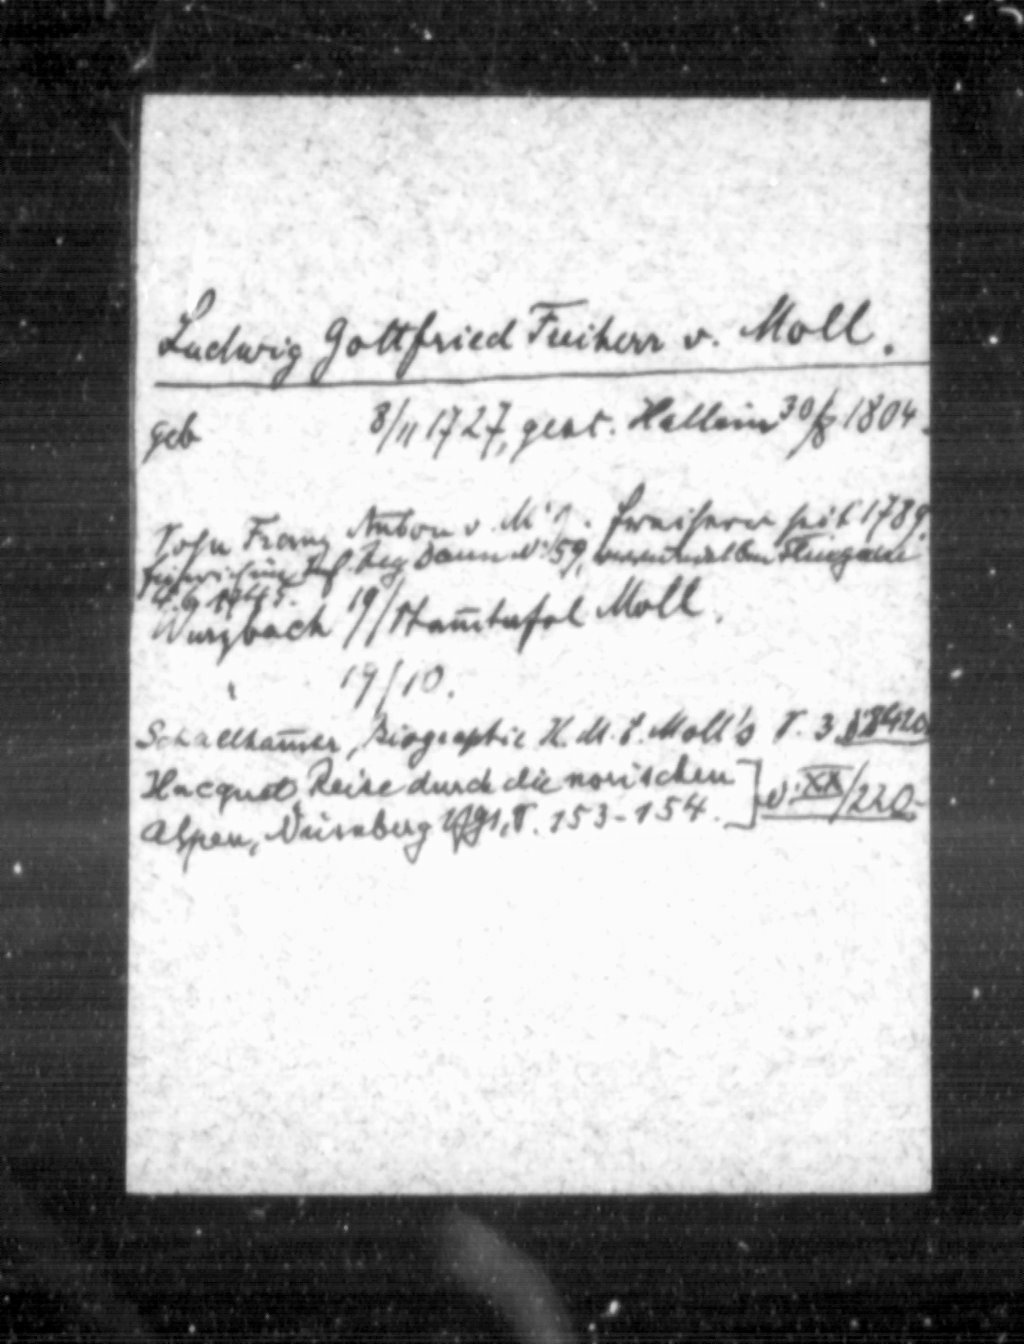 Ludwig Gottfried Freiherr v. Moll.
geb 8/11 1727, gest. Hallein 30/8 1804.
Sohn Franz Anton v. M's. Freiherr seit 1789.
Inf. Reg Daun N: 59,
4.6 1745.
Wurzbach 19/ Stam̄tafel Moll.
19/10.
Schallham̄er, Biographie K. M. E. Moll's S. 3
Hacquet Reise durch die norischen
Alpen, Nürnberg 1791, S. 153-154. ] N: XX/220